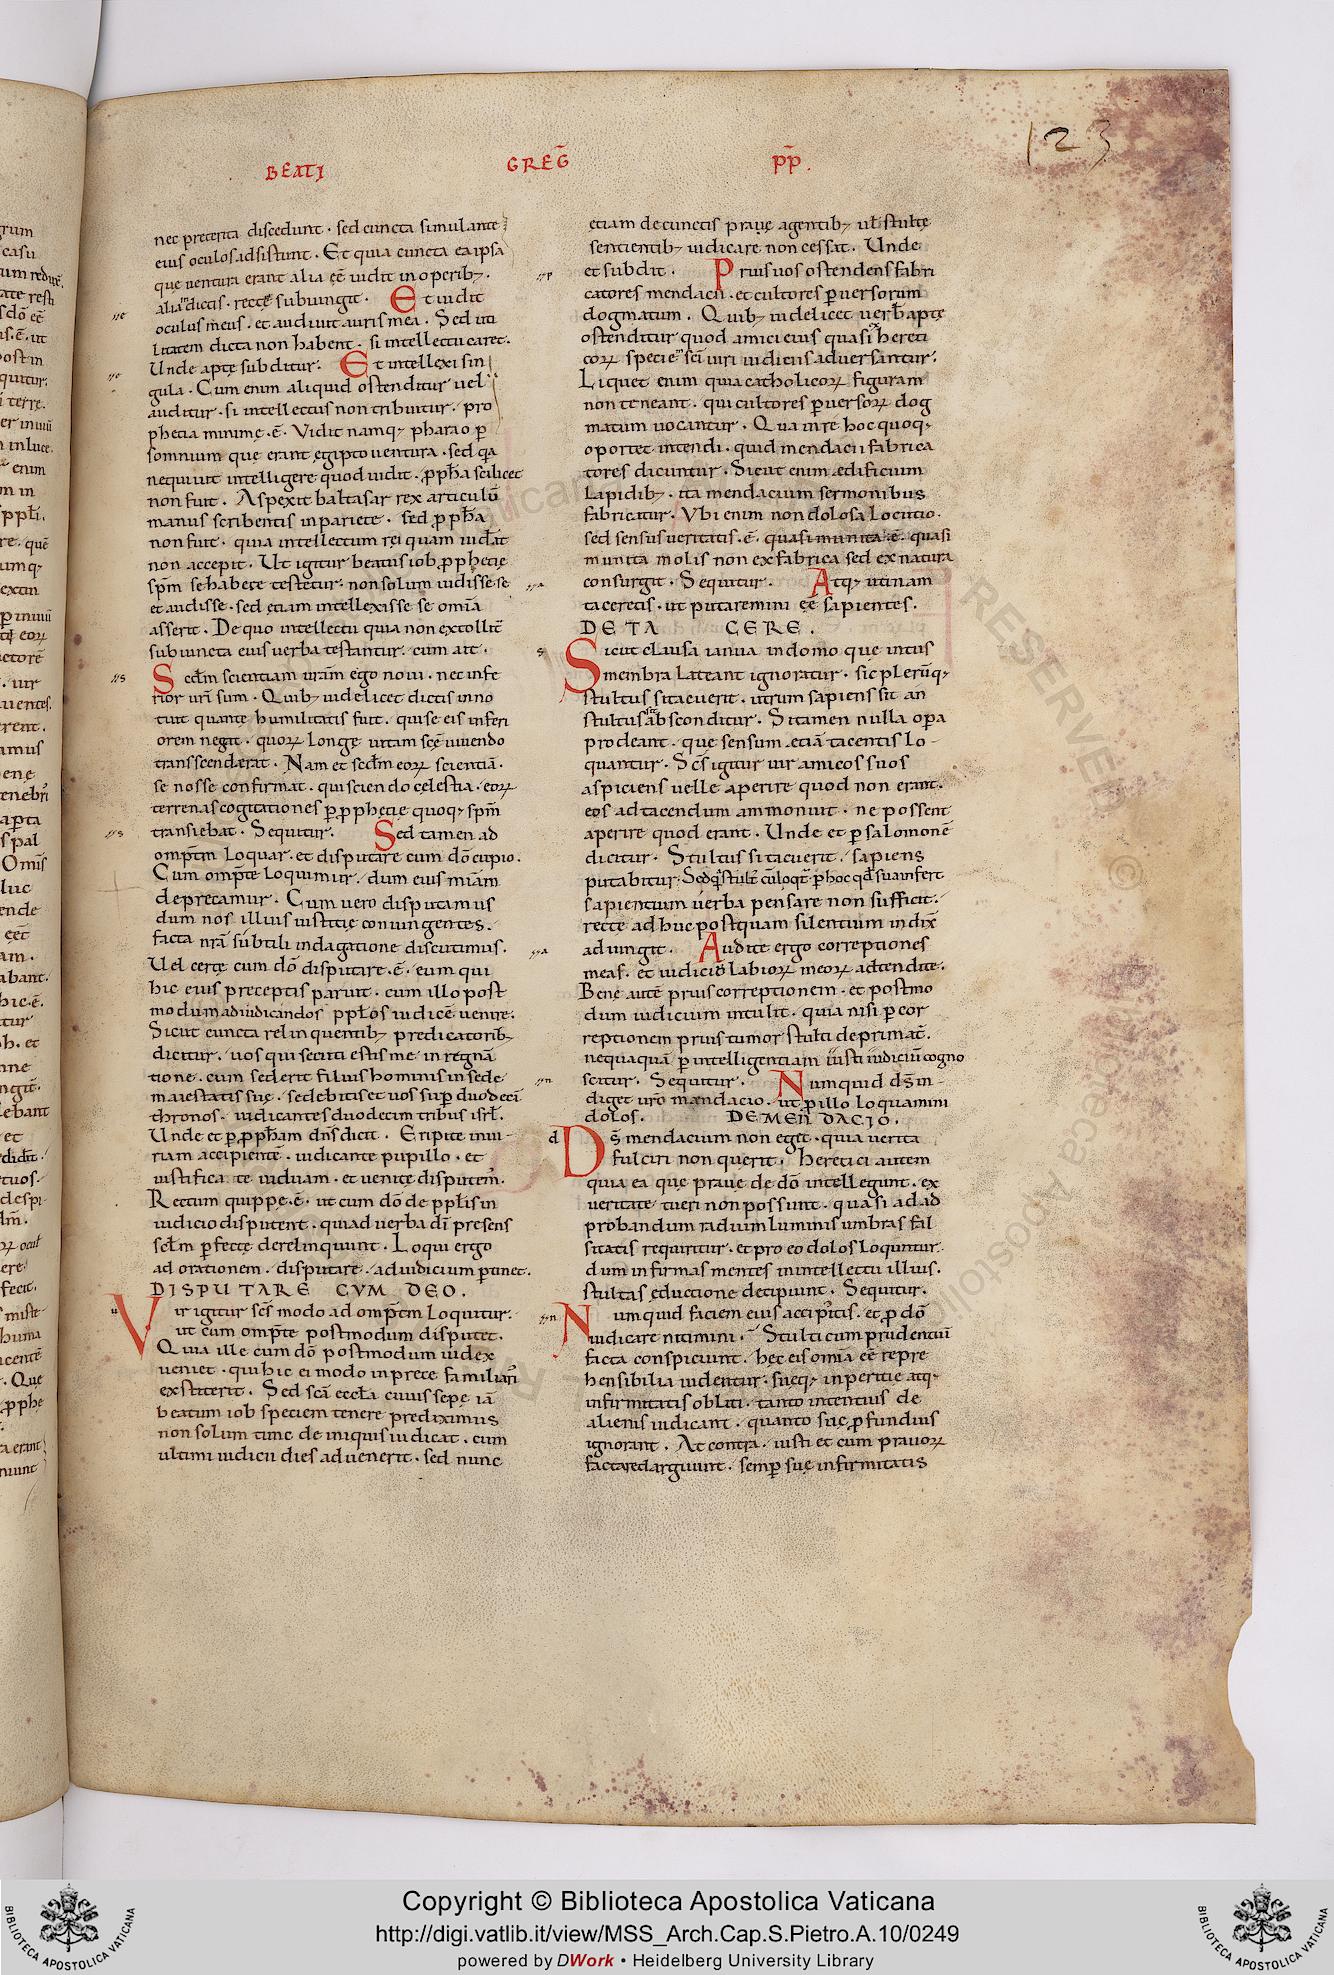 BEATI GREG̅ PP̅.
123
nec preterita discedunt · sed cuncta simul ante
eius oculos adsistunt · Et quia cuncta ea ipsa
que ventura erant alia ee̅ uidit in operib; ·
alia dictis · recte̜ subiungit · Et uidit
oculus m̅eus · et audiuit auris mea · Sed uti
litatem dicta non habent · si intellectu caret ·
Unde apte̜ subditur · Et intellexi sin
gula · Cum enim aliquid ostenditur uel
auditur · si intellectus non tribuitur · pro
phetia minime̜ · e̅ · Vidit namq; pharao p̲
somnium que̜ erant e̜gipto uentura · sed qa
nequiuit intelligere quod uidit · p̲ph̅a scilicet
non fuit · Aspexit baltasar rex articulu̅
manus scribentis in pariete · sed p̲ph̅a
non fuit · quia intellectum rei quam uiderat
non accepit · Ut igitur beatus iob p̲phetie̜
sp̅m se habere testetur · non solum uidisse se
et audisse · sed etiam intellexisse se om̅ia
asserit · De quo intellectu quia non extollit̅
subiuncta eius uerba testantur · cum ait ·
Sed̅m scientiam ur̅am et ego noui · nec infe
rior ur̅i sum · Quib; uidelicet dictis inno
tuit quante̜ humilitatis fuit · qui se eis inferi
orem negat · quoꝝ longe̜ uitam sc̅e uiuendo
transscenderat · Nam et sed̅m eoꝝ scientia̅ ·
se nosse confirmat · qui sciendo ce̜lestia · eoꝝ
terrenas cogitationes p̲ p̲phetie̜ quoq; sp̅m
transiebat · Sequitur · Sed tamen ad
omp̅tm loquar · et disputare cum do̅ cupio ·
Cum omp̅te loquimur · dum eius mi̅am
deprecamur · Cum uero disputamus
dum nos illius iustitie̜ coniungentes ·
facta nr̅a subtili indagatione discutimus ·
Vel certe̜ cum do̅ disputare · e̅ · eum qui
hic eius preceptis paruit · cum illo post
modum ad iudicandos ppl̅os iudice̅ uenire ·
Sicut cuncta relinquentib; predicatorib;
dicitur · uos qui secuti estis me · in regn̅a
tione · cum sederit filius hominis in sede
maiestatis sue̜ · sedebitis et uos sup̲ duodeci̅
thronos · iudicantes duodecim tribus isrl̅ ·
Unde et p̲ p̲ph̅am dn̅s dicit · Eripite iniu-
riam accipiente̅ · iudicate pupillo · et
iustificate uiduam · et uenite disputem' ·
Rectum quippe · e̅ · ut cum do̅ de ppl̅is in
iudicio disputent · qui ad uerba di̅ presens
scl̅m p̲fecte̜ derelinquunt · Loqui ergo
ad orationem · disputare · ad iudicium p̲tinet ·
DISPUTARE CVM DEO ·
Vir igitur sc̅s modo ad omp̅tm loquitur ·
ut cum omp̅te postmodum disputet ·
Quia ille cum do̅ postmodum iudex
ueniet · qui hic ei modo in prece familiari'
exstiterit · Sed sc̅a eccl̅a cuius sepe̜ ia̅
beatum iob speciem tenere prediximus
non solum tunc de iniquis iudicat · cum
ultimi iudicii dies aduenerit · sed nunc
etiam de cunctis praue̜ agentib; ul̅ stulte̜
sentientib; iudicare non cessat · Unde
et subdit · Prius uos ostendens fabri
catores mendacii · et cultores p̲uersorum
dogmatum · Quib; uidelicet uerb̅ apte̜
ostenditur quod amici eius quasi hereti
coꝝ specie̅ sc̅i uiri iudiciis aduersantur ·
Liquet enim quia catholicoꝝ figuram
non teneant · qui cultores p̲uersoꝝ dog
matum uocantur · Qua in re hoc quoq;
oportet intendi · quid mendacii fabrica
tores dicuntur · Sicut enim ædificium
lapidib; · ita mendacium sermonibus
fabricatur · Vbi enim non dolosa locutio ·
sed sensus ueritatis · e̅ · quasi munita · e̅ · quasi
munita molis non ex fabrica sed ex natura
consurgit · Sequitur · Atq; utinam
taceretis · ut putaremini ee̅ sapientes ·
DE TACERE ·
Sicut clausa ianua in domo que̜ intus
membra lateant ignoratur · sic pleru̅q;
stultus si tacuerit · utrum sapiens sit an
stultus absconditur · Si tamen nulla op̲a
prodeant · que̜ sensum etia̅ tacentis lo-
quantur · Sc̅s igitur uir amicos suos
aspiciens uelle aperire quod non erant ·
eos ad tacendum ammonuit · ne possent
aperire quod erant · Unde et p̲ salomone̅
dicitur · Stultus si tacuerit · sapiens
putabitur ·
sapientium uerba pensare non sufficit ·
recte adhuc postquam silentium indix̅
adiungit · Audite ergo correptiones
meas · et iudiciu̅ labioꝝ meoꝝ adtendite ·
Bene aute̅ prius correptionem · et postmo
dum iudicium intulit · quia nisi p̲ cor
reptionem prius tumor stulti deprimat̅ ·
nequaqua̅ p̲ intelligentiam iusti iudiciu̅ cogno
scitur · Sequitur · Numquid ds̅ in-
diget uro mendacio · ut p̲ illo loquamini
dolos · DE MENDACIO ·
Ds̅ mendacium non eget · quia uerita
fulciri non querit · Heretici autem
quia ea que̜ praue̜ de do̅ intellegunt · ex
ueritate tueri non possunt · quasi ad ad
probandum radium luminis umbras fal
sitatis requiritur · et pro eo dolos loquntur ·
dum infirmas mentes in intellectu illius ·
stulta seductione decipiunt · Sequitur ·
Numquid faciem eius accipitis · et p̲ do̅
iudicare nitimini · Stulti cum prudentiu̅
facta conspiciunt · hec eis om̅ia ee̅ repre
hensibilia uidentur · sue̜q; inperitie̜ atq;
infirmitatis obliti · tanto intentius de
alienis iudicant · quanto sue̜ p̲fundius
ignorant · At contra · iusti et cum prauoꝝ
facta redarguunt · semp̲ sue̜ infirmitatis
Copyright © Biblioteca Apostolica Vaticana
http://digi.vatlib.it/view/MSS_Arch.Cap.S.Pietro.A.10/0249
powered by DWork • Heidelberg University Library
BIBLIOTECA APOSTOLICA VATICANA
BIBLIOTECA APOSTOLICA VATICANA